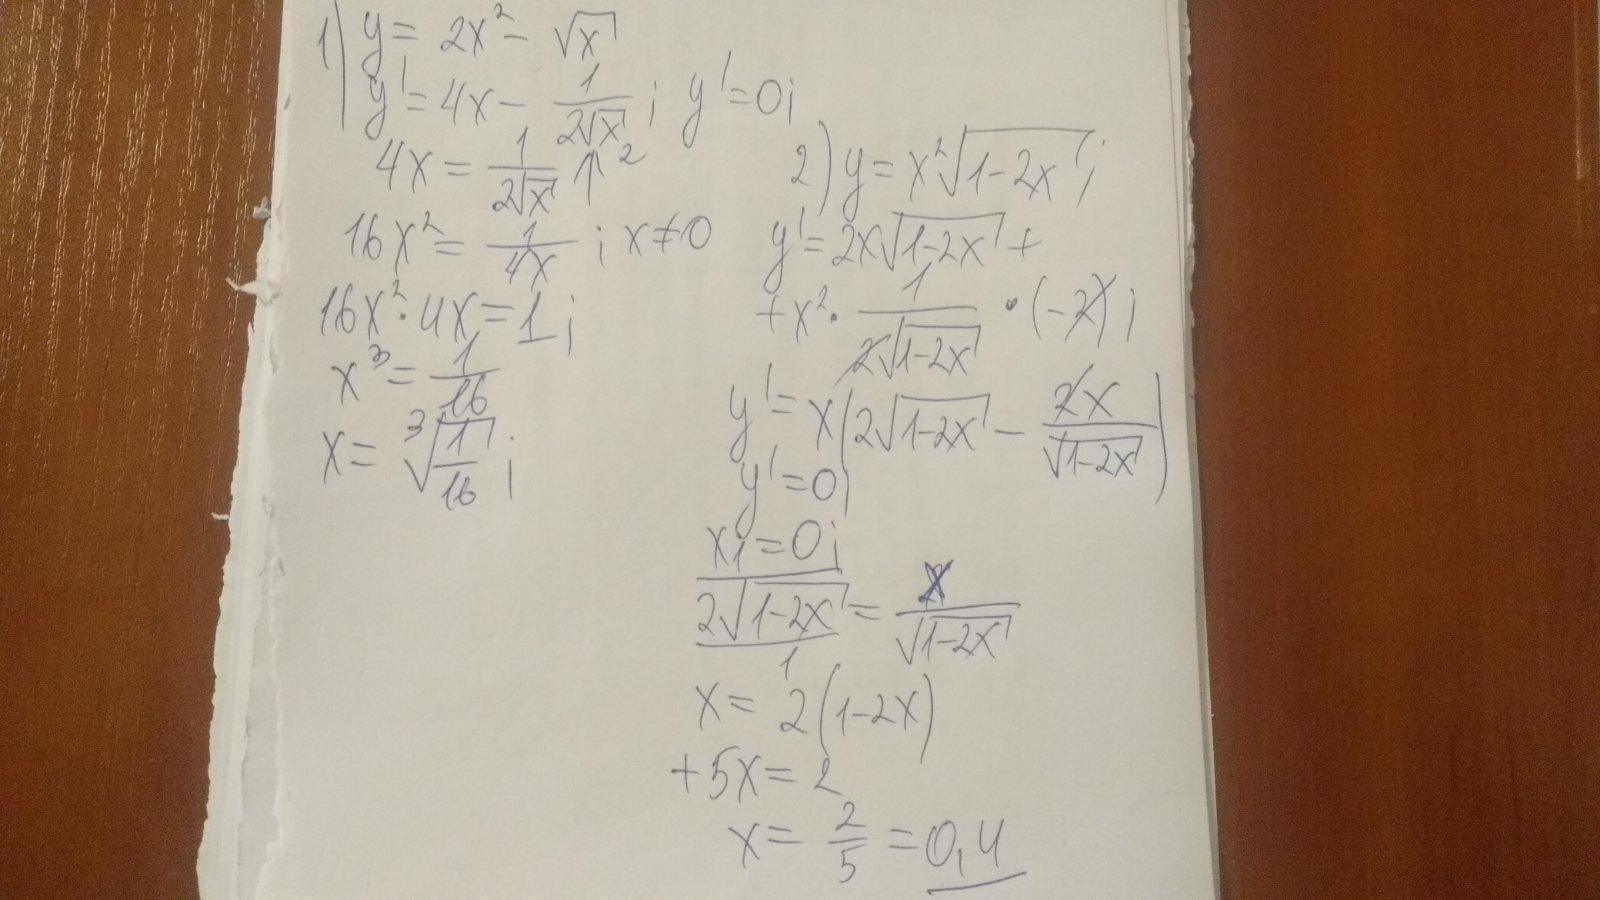 1) y = 2x² - √x
y' = 4x - 1/(2√x) ; y' = 0;
4x = 1/(2√x) ↑²
16x² = 1/(4x) ; x ≠ 0
16x² · 4x = 1;
x³ = 1/16
x = ³√(1/16) ;
2) y = x²√(1-2x) ;
y' = 2x√(1-2x) +
+ x² · 1/(2√(1-2x)) · (-2) ;
y' = x(2√(1-2x) - 2x/√(1-2x))
y' = 0;
x1 = 0;
2√(1-2x)/1 = x/√(1-2x)
x = 2(1-2x)
+5x = 2
x = 2/5 = 0,4